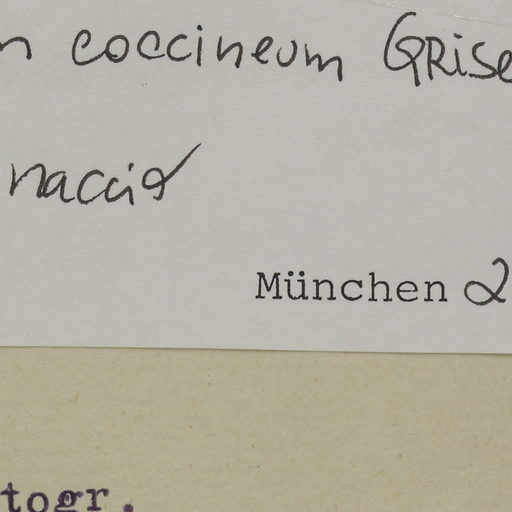 n coccineum GRISE
naccia
München 2
togr.